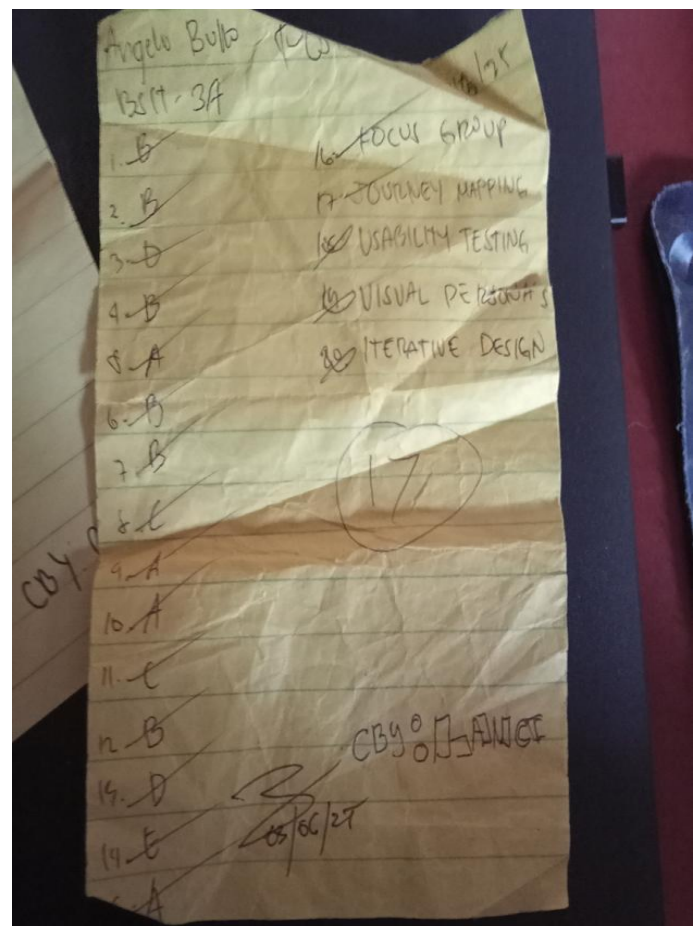 Angelo Bullo
BSIT-3A
1. B
2. B
3. D
4. B
5. A
6. B
7. B
8. C
9. A
10. A
11. C
12. B
13. D
14. E
A
16. FOCUS GROUP
17. JOURNEY MAPPING
18. USABILITY TESTING
19. VISUAL PERSONAS
20. ITERATIVE DESIGN
17
CBY:
CBY